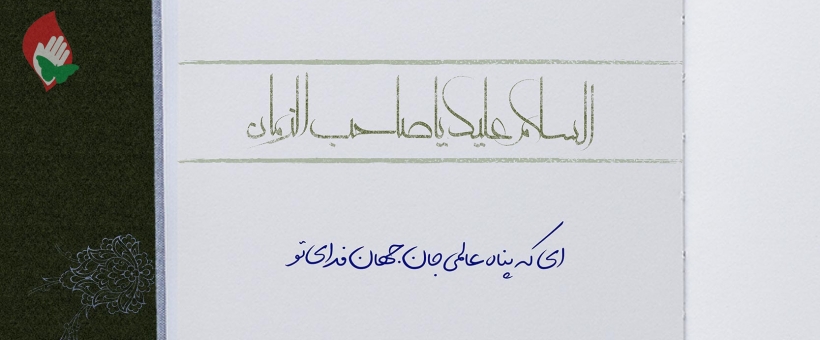 السلام علیک یا صاحب الزمان
ای که پناه عالمی جان جهان فدای تو